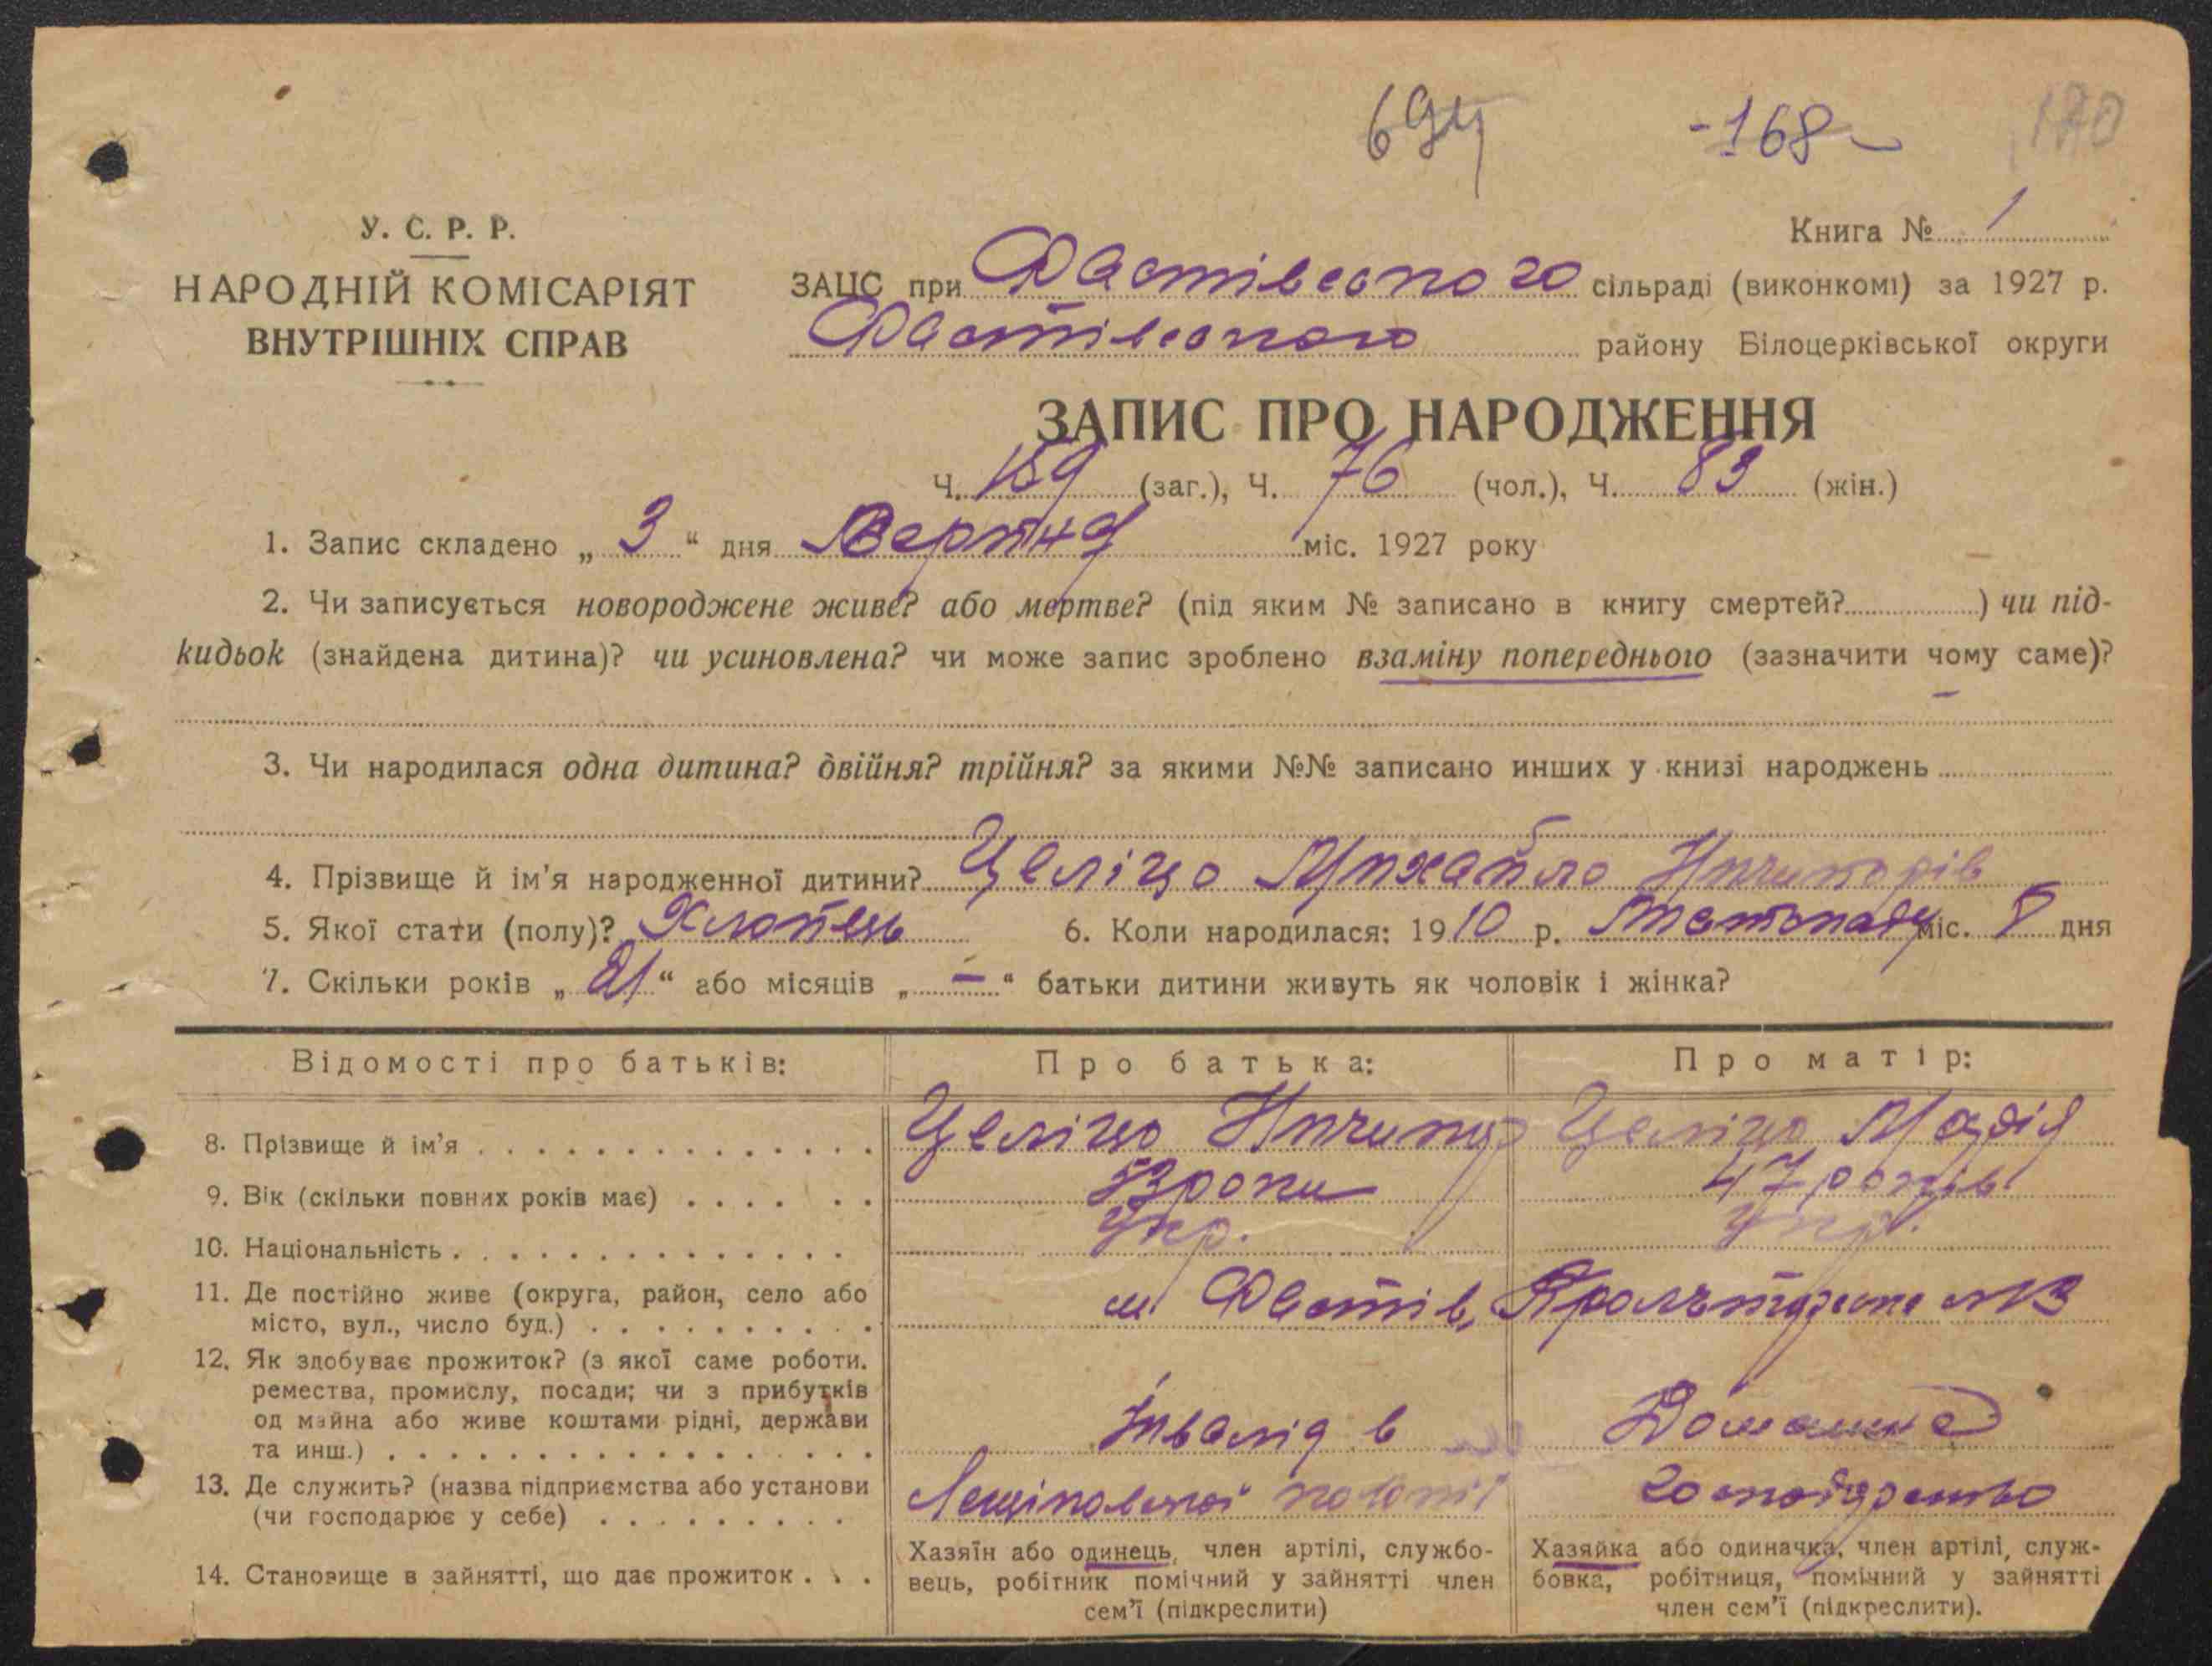 694 -168-
Книга № 1
У. С. Р. Р.
НАРОДНІЙ КОМІСАРІЯТ
ВНУТРІШНІХ СПРАВ
ЗАЦС при Фастівського сільраді (виконкомі) за 1927 р.
Фастівського району Білоцерківської округи
ЗАПИС ПРО НАРОДЖЕННЯ
Ч. 159 (заг.), Ч. 76 (чол.), Ч. 83 (жін.)
1. Запис складено „ 3 “ дня міс. 1927 року
2. Чи записується новороджене живе? або мертве? (під яким № записано в книгу смертей? ) чи під-
кидьок (знайдена дитина)? чи усиновлена? чи може запис зроблено взаміну попереднього (зазначити чому саме)?
–
3. Чи народилася одна дитина? двійня? трійня? за якими №№ записано инших у книзі народжень
4. Прізвище й ім’я народженної дитини? Целіцо Михайло Ничипорів
5. Якої стати (полу)? Хлопець 6. Коли народилася: 1910 р. Листопаду міс. 8 дня
7. Скільки років „ 21 “ або місяців „ – “ батьки дитини живуть як чоловік і жінка?
Відомості про батьків: Про батька: Про матір:
8. Прізвище й ім’я Целіцо Ничипир Целіцо Марія
9. Вік (скільки повних років має) 53 роки 47 років
10. Національність Укр. Укр.
11. Де постійно живе (округа, район, село або
місто, вул., число буд.) м Фастів, №13
12. Як здобуває прожиток? (з якої саме роботи.
ремества, промислу, посади; чи з прибутків
од майна або живе коштами рідні, держави
та инш.) Інвалід в Домашнє
13. Де служить? (назва підприємства або установи
(чи господарює у себе) господарство
14. Становище в зайнятті, що дає прожиток
Хазяїн або одинець, член артілі, службо-
вець, робітник помічний у зайнятті член
сем’ї (підкреслити)
Хазяйка або одиначка, член артілі, служ-
бовка, робітниця, помічний у зайнятті
член сем’ї (підкреслити).